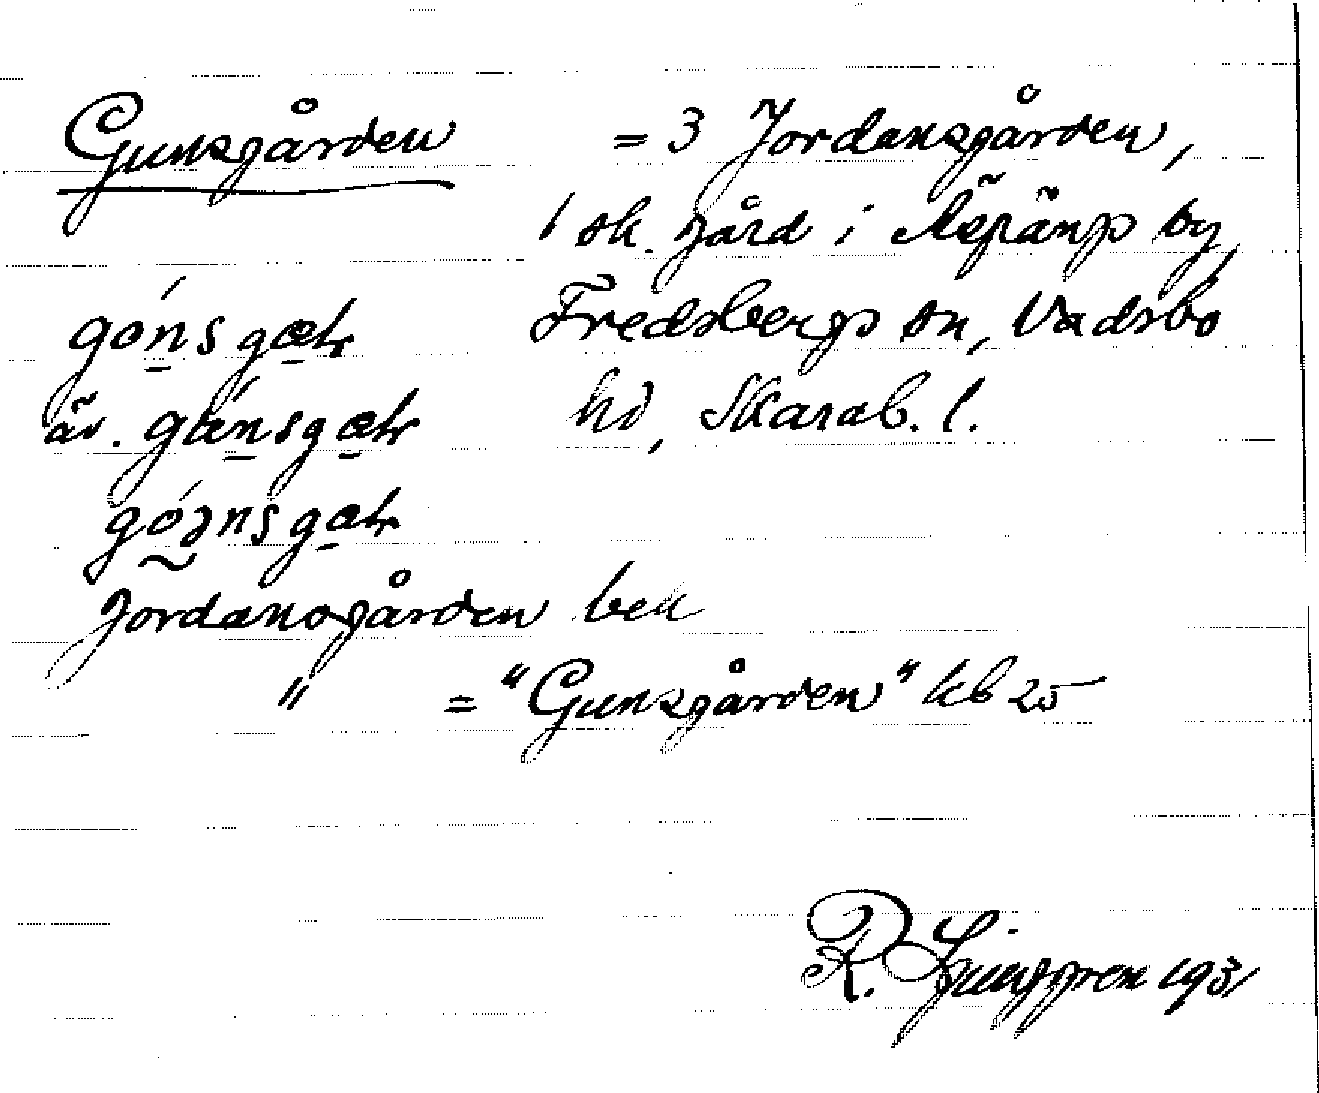 Gunsgården = 3 Jordansgården,
1 sk. gård i Äspäng by,
Fredsbergs sn, Vadsbo
hd, Skarab. l.
gónsgætr
äv. gǻnsgætr
góznsgætr
Jordansgården bek
" = "Gunsgården" kb 25
R. Ljunggren 1931